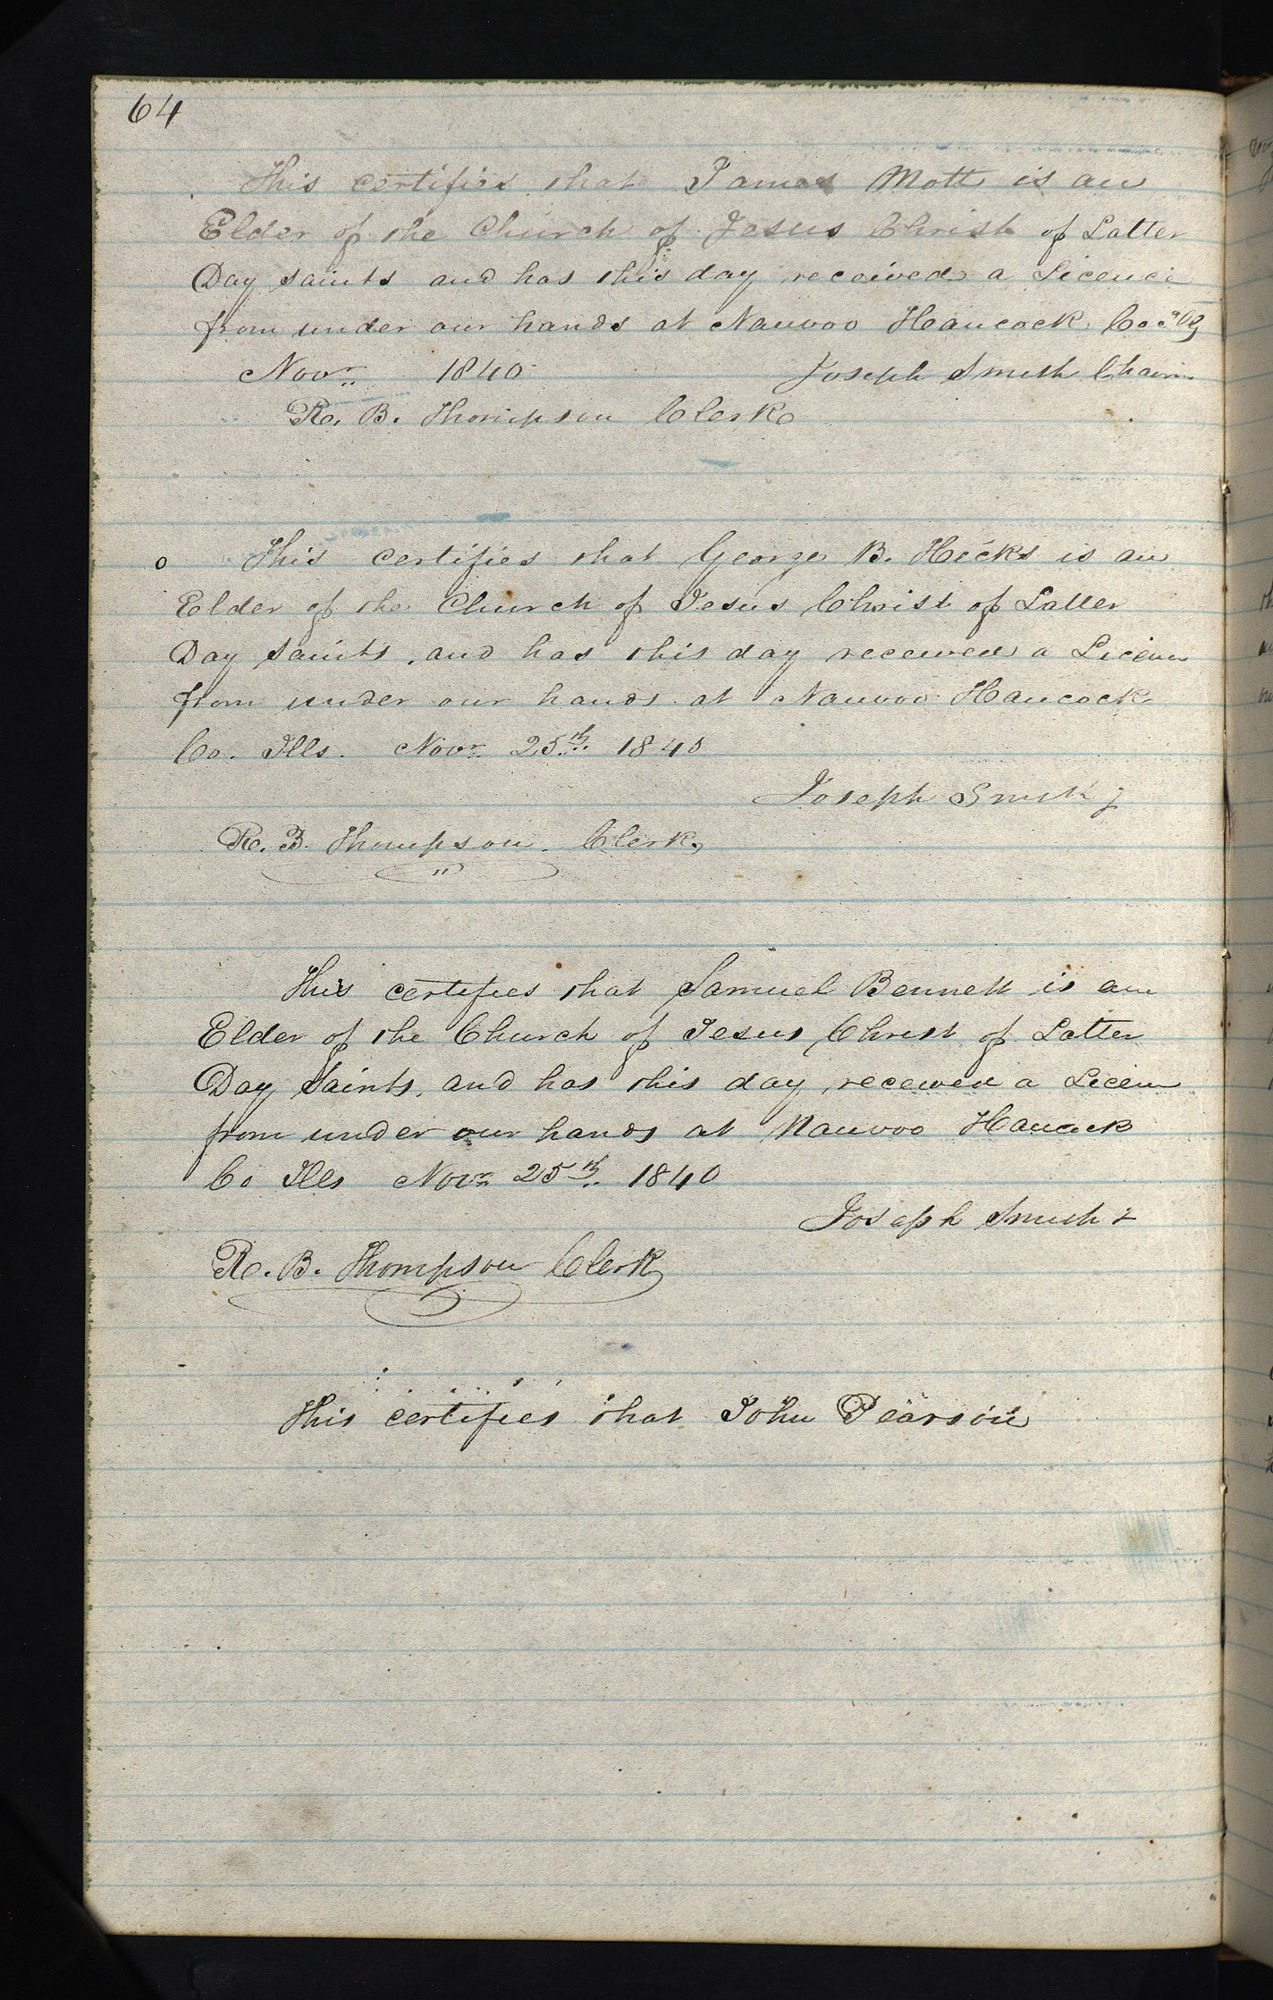 64
This certifies that James Mott is an
Elder of the Church of Jesus Christ of Latter
Day saints and has this day received a Licence
from under our hands at Nauvoo Hancock Co Ills
Novr 1840 Joseph Smith Chairn
R. B. Thompson Clerk
o This certifies that George B. Hicks is an
Elder of the Church of Jesus Christ of Latter
Day Saints, and has this day received a Licen
from under our hands at Nauvoo Hancock
Co. Ills. Novr 25th 1840
Joseph Smith
R. B. Thompson. Clerk,
This certifies that Samuel Bennett is an
Elder of the Church of Jesus Christ of Latter
Day Saints, and has this day received a Licen
from under our hands at Nauvoo Hancock
Co Ills Novr 25th 1840
Joseph Smith
R. B. Thompson Clerk
This certifies that John Pearson